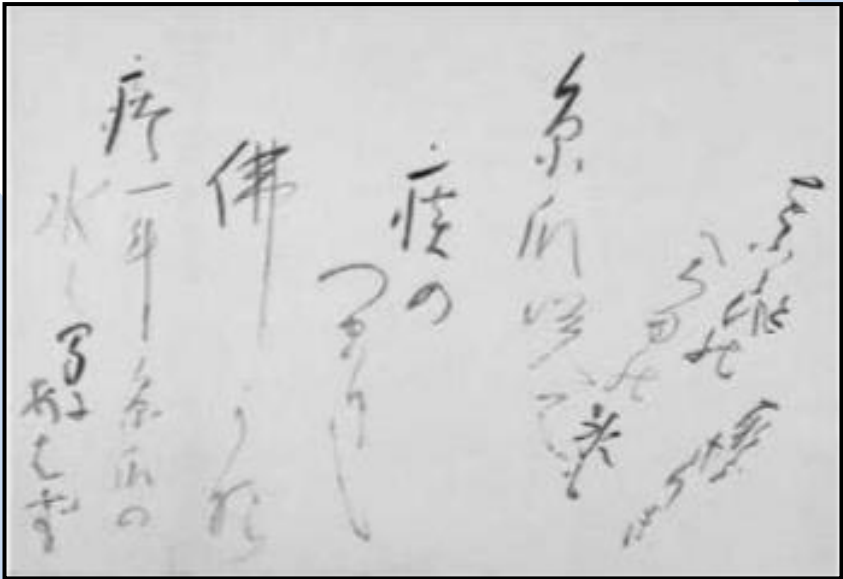 糸瓜咲て
痰の
つまりし
佛かな
痰一斗糸瓜の
水も
間に
あはず
へちまの